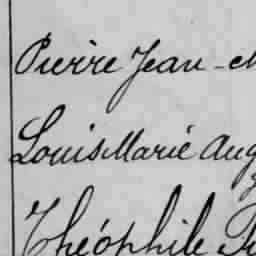 Pierre Jean-M
Louis Marie Aug
Théophile Fr